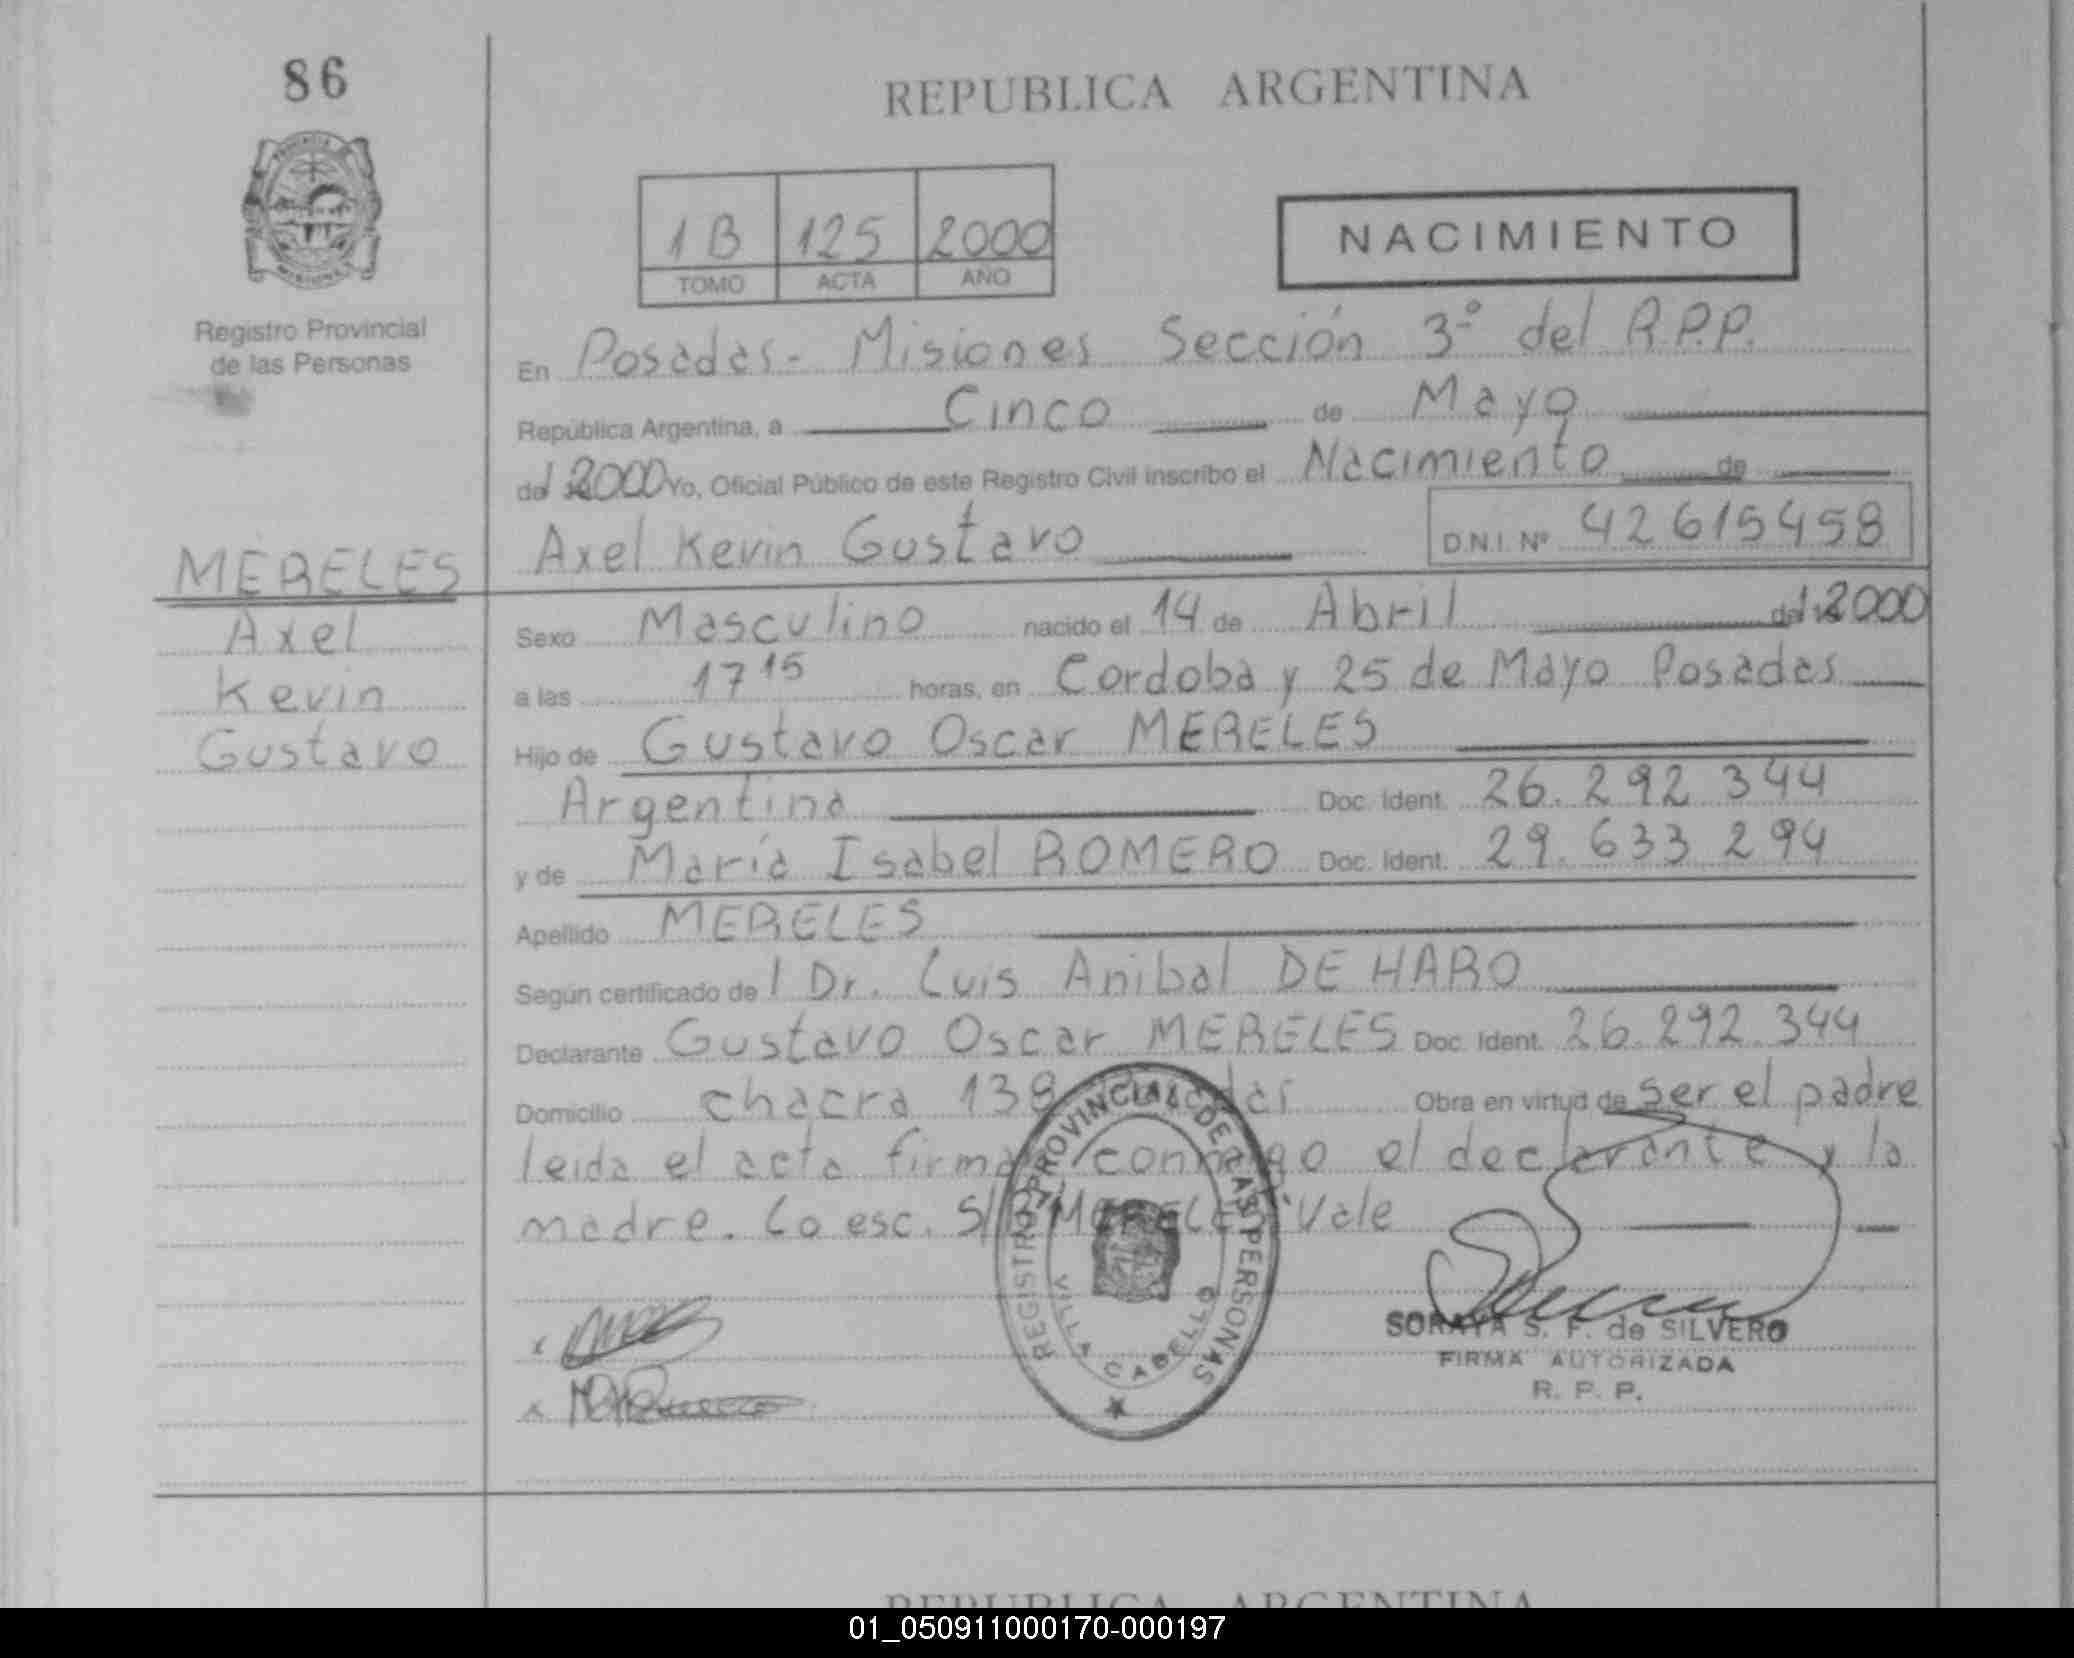 86
REPUBLICA ARGENTINA
PROVINCIA
MISIONES
Registro Provincial
de las Personas
1B 125 2000
TOMO ACTA AÑO
NACIMIENTO
En Posadas - Misiones Sección 3º del R.P.P.
República Argentina, a Cinco de Mayo
del 2000 Yo, Oficial Público de este Registro Civil inscribo el Nacimiento de
Axel Kevin Gustavo D.N.I. Nº 42615458
MERELES
Axel
Kevin
Gustavo
Sexo Masculino nacido el 14 de Abril del 2000
a las 17 15 horas, en Cordoba y 25 de Mayo Posadas
Hijo de Gustavo Oscar MERELES
Argentina Doc. Ident. 26.292.344
y de María Isabel ROMERO Doc. Ident. 29.633.294
Apellido MERELES
Según certificado del Dr. Luis Anibal DE HARO
Declarante Gustavo Oscar MERELES Doc. Ident. 26.292.344
Domicilio chacra 138 Posadas Obra en virtud de ser el padre
leida el acta firma conmigo el declarante y la
madre. Lo esc. S/R "MERELES" Vale
REGISTRO PROVINCIAL DE LAS PERSONAS
VILLA CABELLO
SORAYA S. F. de SILVERO
FIRMA AUTORIZADA
R. P. P.
REPUBLICA ARGENTINA
01_050911000170-000197